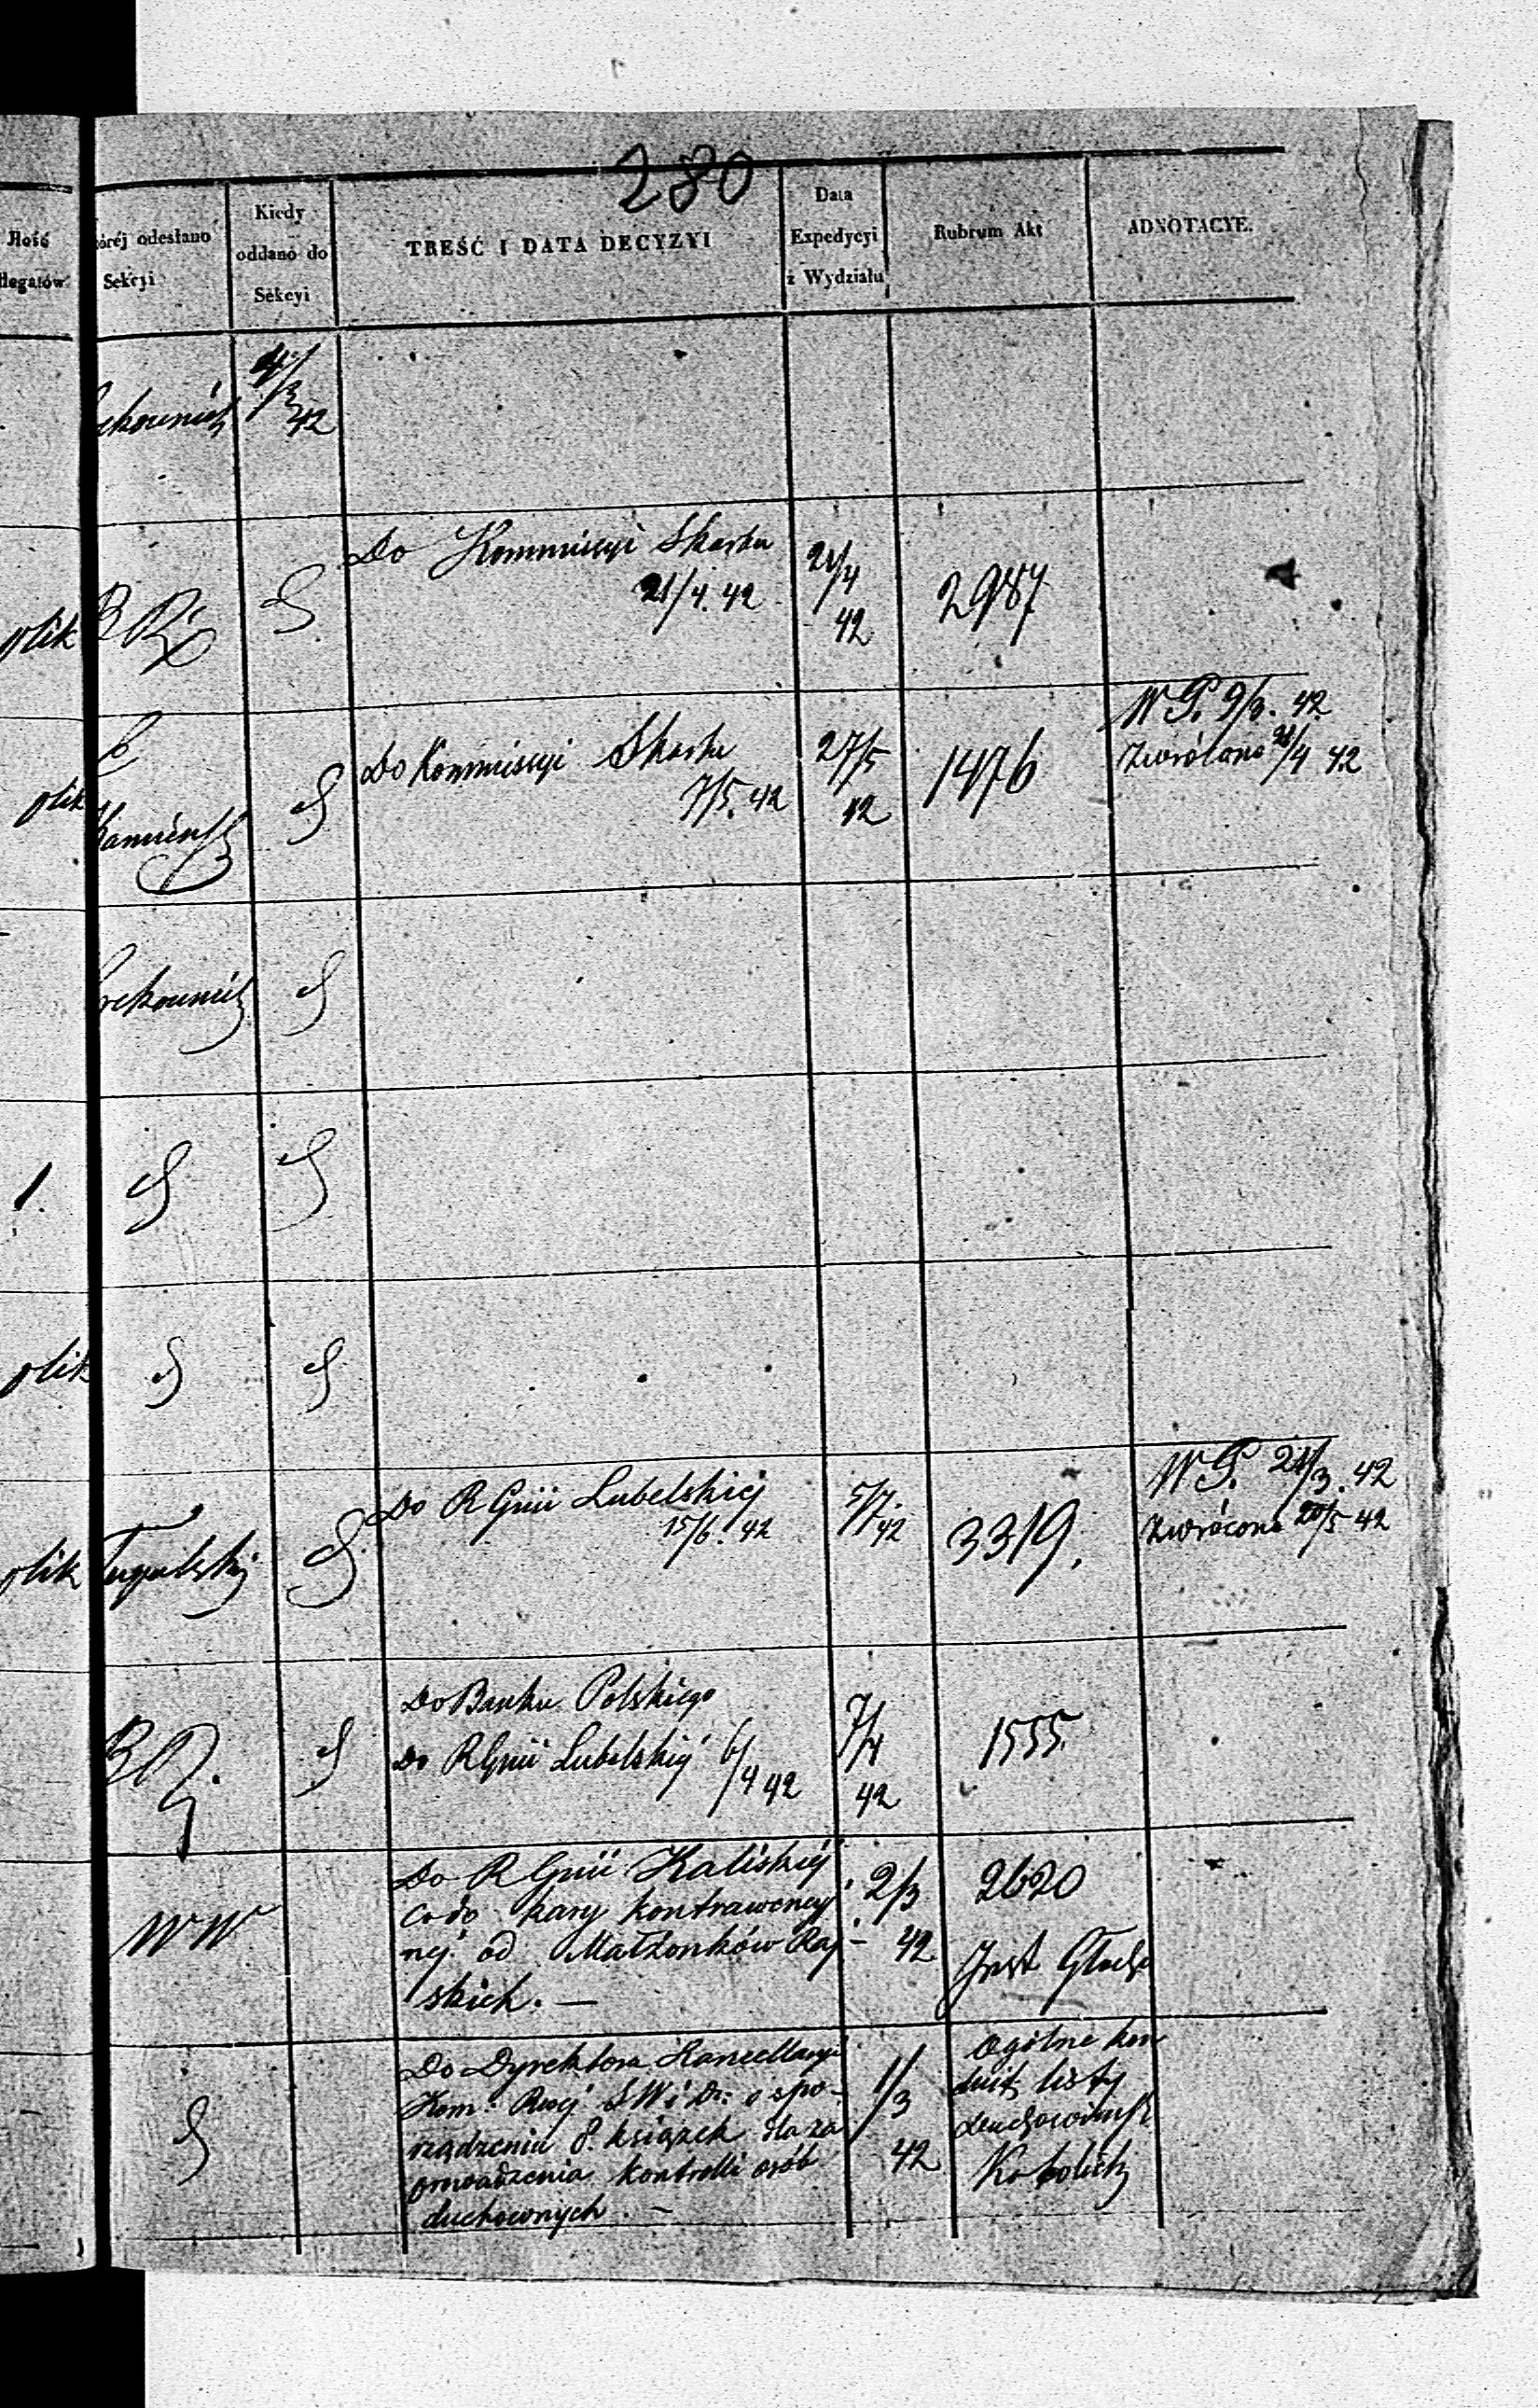 280
Ilość
llegatów
tóréj odesłano
Sekcyi
Kiedy
oddano do
Sekcyi
TREŚĆ I DATA DECYZYI
Data
Expedycyi
z Wydziału
Rubrum Akt
ADNOTACYE.
4/3
42
plik
Do Kommissyi Skarbu
21/4. 42
21/4
42
2987
plik
Do Kommissyi Skarbu
7/5. 42
27/5
42
1476
W P. 9/3. 42
Zwrócono 21/4 42
1.
plik
plik
Do R Gnii Lubelskiej
15/6. 42
5/7.
42
3319.
W P. 21/3. 42
Zwrócono 20/5 42
Do Banku Polskiego
Do R Gnii Lubelskiéj 6/4 42
7/4
42
1555.
WW
Do R Gnii Kaliskiéj
co do kary kontrawency
nej. od Małżonków Raj-
skich. —
2/3
42
2620
Do Dyrektora Kancellaryi
Kom: Rząj SW i D: o spo-
rządzenia 8. książek dla za
prowadzenia kontrolli osób
duchownych. —
1/3
42
Ogólne kon
duit listy